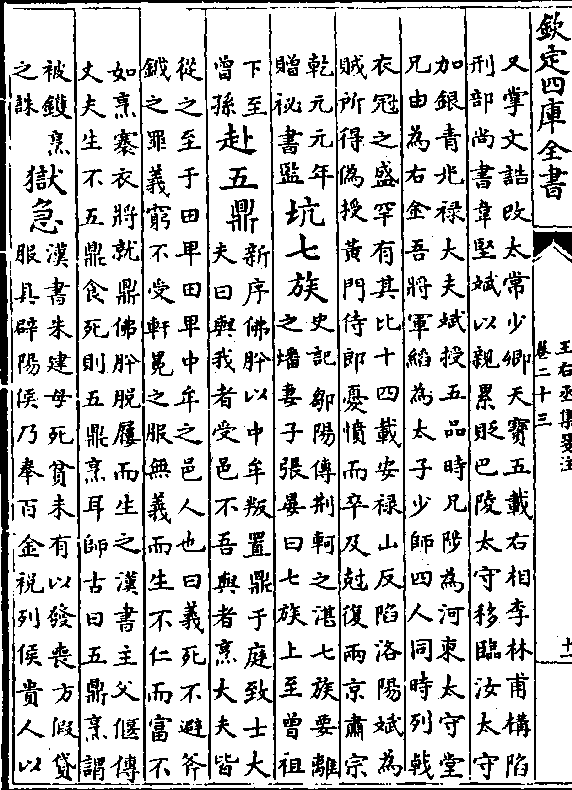 欽定四庫全書
王右丞集箋注
卷二十三
十一
又掌文誥改太常少卿天寶五載右相李林甫構陷
刑部尚書韋堅斌以親累貶巴陵太守移臨汝太守
加銀青光祿大夫斌授五品時兄陟為河東太守堂
兄由為右金吾將軍縚為太子少師四人同時列戟
衣冠之盛罕有其比十四載安禄山反陷洛陽斌為
賊所得偽授黃門侍郎憂憤而卒及尅復兩京肅宗
乾元元年
贈祕書監
坑七族
史記鄒陽傳荆軻之湛七族要離
之燔妻子張晏曰七族上至曾祖
下至
曾孫
赴五鼎
新序佛肸以中牟叛置鼎于庭致士大
夫曰與我者受邑不吾與者烹大夫皆
從之至于田卑田卑中牟之邑人也曰義死不避斧
鉞之罪義窮不受軒冕之服無義而生不仁而富不
如烹褰衣將就鼎佛肸脱屨而生之漢書主父偃傳
丈夫生不五鼎食死則五鼎烹耳師古曰五鼎烹謂
被鑊烹
之誅
獄急
漢書朱建母死貧未有以發喪方假貸
服具辟陽侯乃奉百金祱列侯貴人以